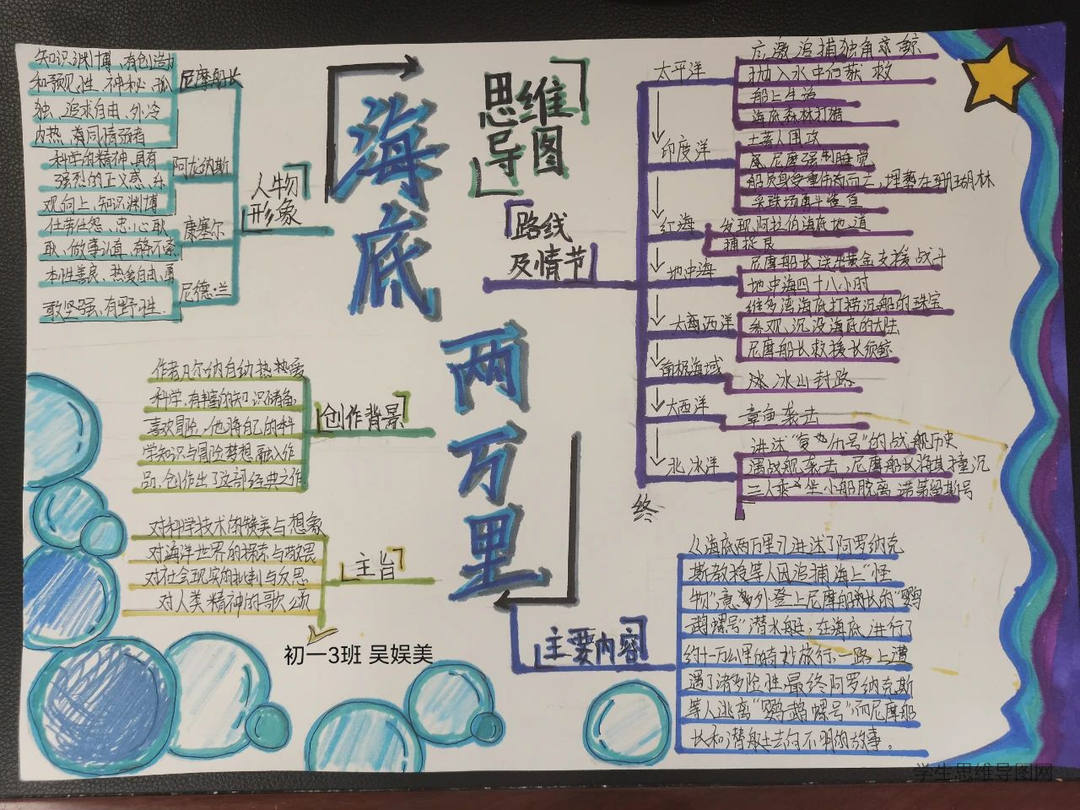 海底
两万里
思维
导图
人物
形象
尼摩船长
知识渊博,有创造力
和预见性,神秘,孤
独、追求自由、外冷
内热,着同情弱者
阿龙纳斯
科学的精神,具有
强烈的正义感、乐
观向上,知识渊博
康塞尔
任劳任怨、忠心耿
耿、做事认真,
尼德·兰
本性善良、热爱自由、勇
敢坚强,有野性.
创作背景
作者凡尔纳自幼热热爱
科学,有丰富的知识储备,
喜欢冒险,他将自己的科
学知识与冒险梦想融入作
品,创作出了这部经典之作
主旨
对科学技术的赞美与想象
对海洋世界的探索与敬畏
对社会现实的批判与反思
对人类精神的歌颂
初一3班 吴娱美
路线
及情节
太平洋
应邀追捕独角鲸
抛入水中何获救
船上生活
海底森林打猎
印度洋
土著人围攻
尼摩强制睡觉
船员身受重伤而亡,埋葬在珊瑚林
采珠场勇斗鲨鱼
红海
发现阿拉伯海底地道
捕捉
地中海
尼摩船长送出黄金支援战斗
地中海四十八小时
大西洋
维多湾海底打捞沉船的珠宝
参观沉没海底的大陆
尼摩船长救援长须鲸
南极海域
冰山封路
大西洋
章鱼袭击
北冰洋
讲述“复仇号”的战舰历史
遇战舰袭击,尼摩船长将其撞沉
三人乘坐小船脱离诺第留斯号
终
主要内容
《海底两万里》讲述了阿罗纳克
斯教授等人因追捕海上“怪
物”意外登上尼摩船长的“鹦
鹉螺号”潜水艇,在海底进行了
约十万公里的奇妙旅行一路上遭
遇了诸多险性最终阿罗纳克斯
等人逃离“鹦鹉螺号”而尼摩船
长和潜艇去向不明的故事。
学生思维导图网